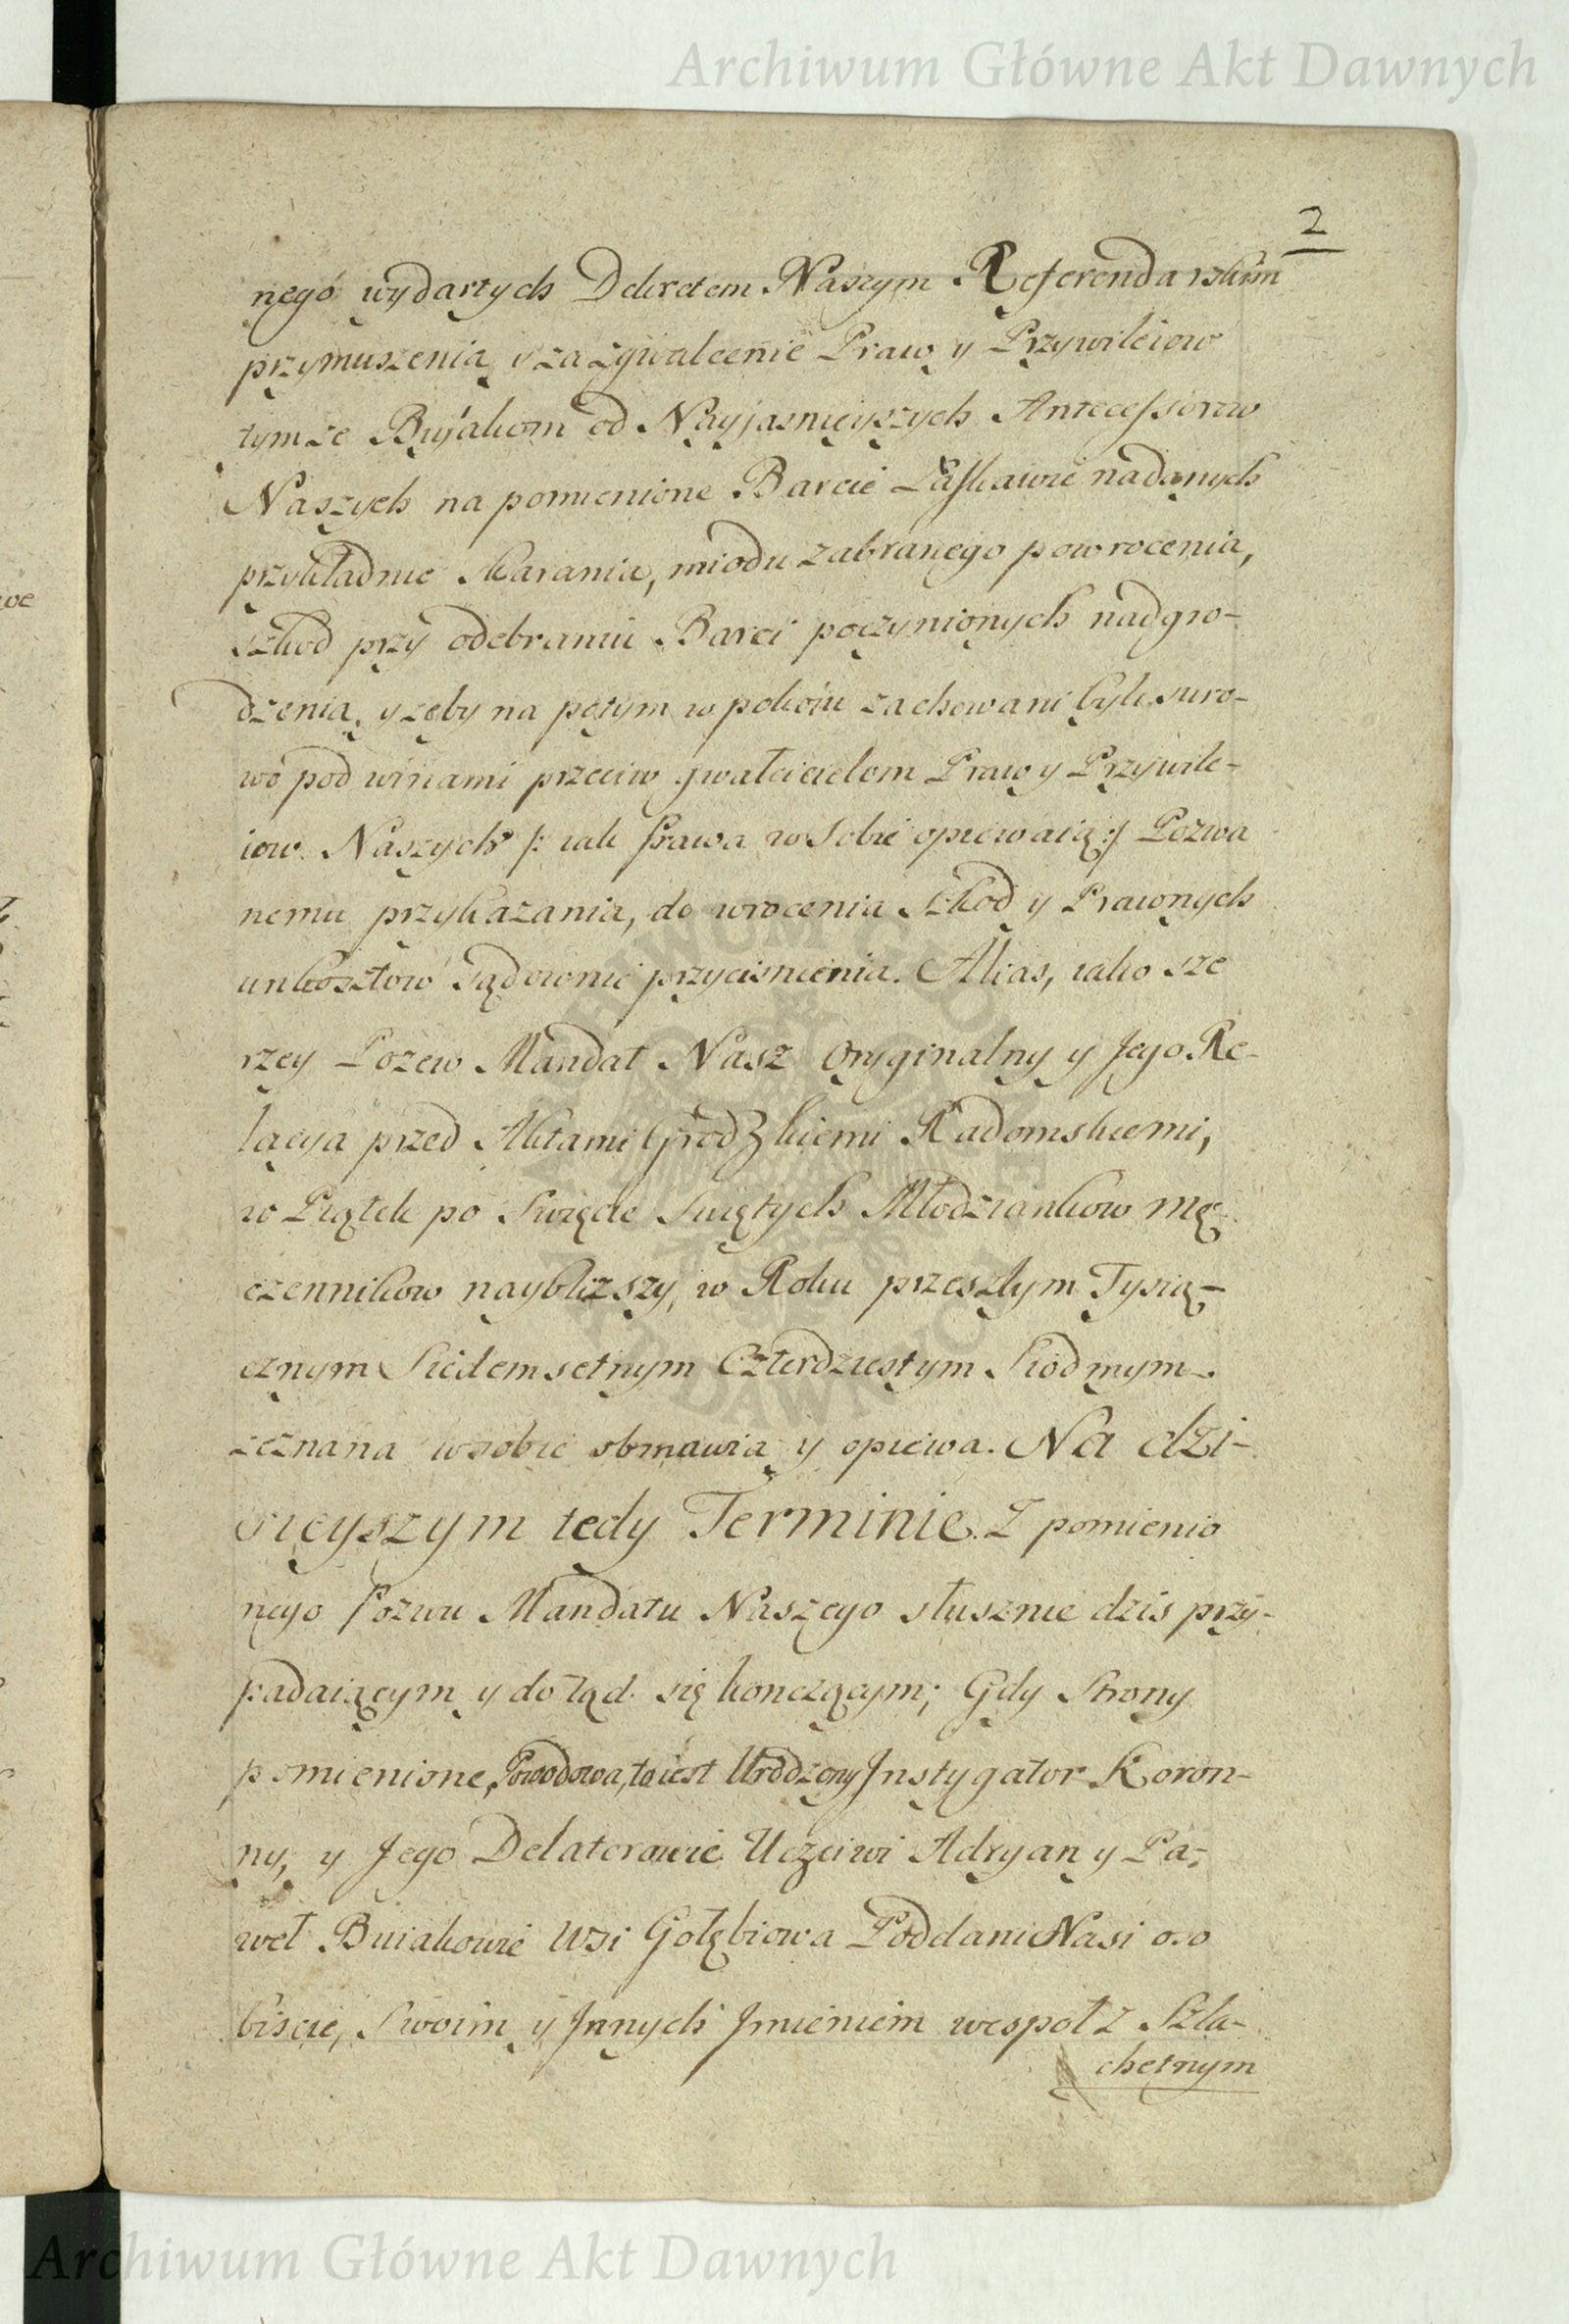 Archiwum Główne Akt Dawnych
2
nego wydartych Dekretem Naszym Referendarskim
przymuszenia, y za zgwałcenie Praw y Przywileiow
tymże Buiakom od Nayjasnieyszych Antecessorow
Naszych na pomienione Barcie Łaskawie nadanych
przykładnie karania, miodu zabranego powrocenia,
szkod przy odebraniu Barci poczynionych nadgro-
dzenia, y żeby na potym w pokoiu zachowani byli suro-
wo pod winami przeciw gwałcicielom Praw y Przywile-
iow Naszych /: iak Prawa w sobie opiewaią :/ Pozwa
nemu przykazania, do wrocenia Szkod y Prawnych
unkosztow sądownie przycisnienia. Alias, iako sze
rzey Pozew Mandat Nasz Oryginalny y Jego Re-
lacya przed Aktami Grodzkiemi Radomskiemi,
w Piątek po Swięcie Swiętych Młodziankow Mę-
czennikow naybliższy, w Roku przeszłym Tysią-
cznym Siedemsetnym Czterdziestym Siodmym
zeznana w sobie obmawia y opiewa. Na dzi-
sieyszym tedy Terminie. Z pomienio
nego Pozwu Mandatu Naszego słusznie dzis przy-
padaiącym y do tąd się konczącym; Gdy Strony
pomienione, Powodowa, to iest Urodzony Jnstygator Koron-
ny, y Jego Delatorowie Uczciwi Adryan y Pa-
weł Buiakowie Wsi Gołębiowa Poddani Nasi oso
biscie, Swoim y Jnnych Jmieniem wespoł z Szla-
chetnym
Archiwum Główne Akt Dawnych